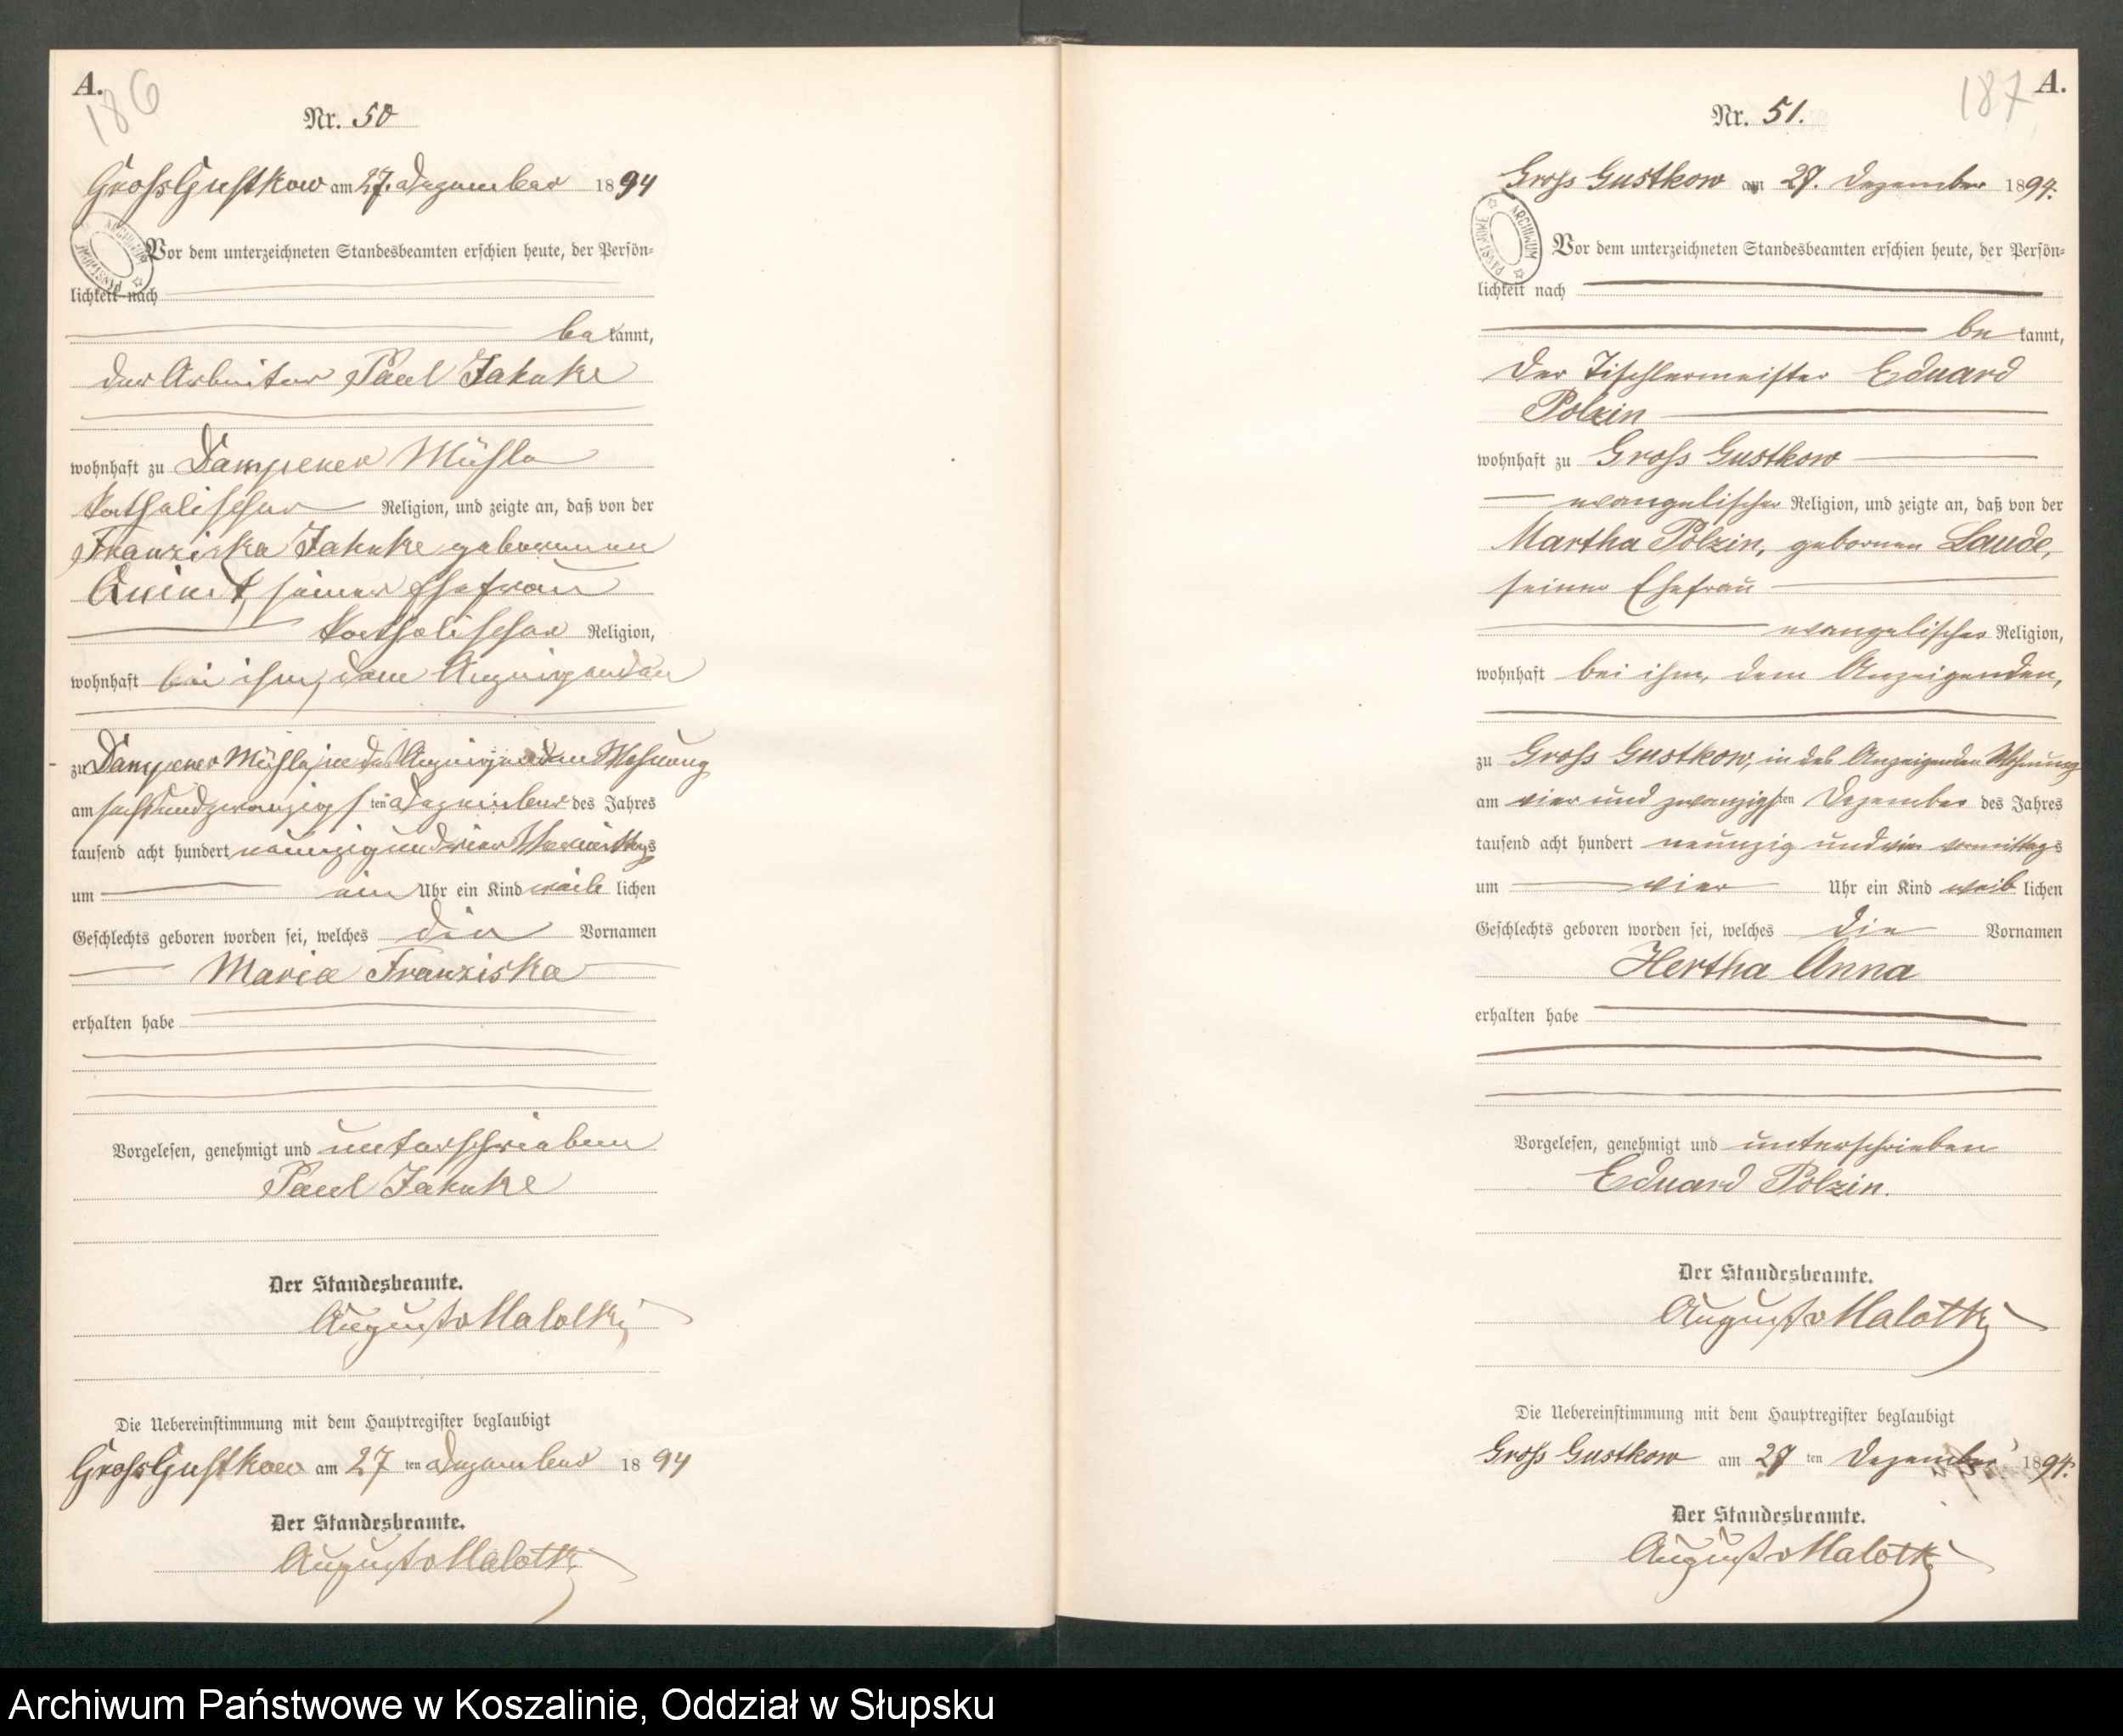 A.
186
Nr. 50
Gross Gustkow am 27. Dezember 1894
ARCHIWUM PAŃSTWOWE
Vor dem unterzeichneten Standesbeamten erschien heute, der Persön-
lichkeit nach
bekannt,
der Arbeiter Paul Jahnke
wohnhaft zu Dampener Mühle
katholischer Religion, und zeigte an, daß von der
Franziska Jahnke geborenen
seiner Ehefrau
katholischer Religion,
wohnhaft bei ihm, dem Anzeigenden
zu Dampener Mühle, in des Anzeigenden Wohnung
am sechsundzwanzigsten Dezember des Jahres
tausend acht hundert neunzig und vier Vormittags
um ein Uhr ein Kind weiblichen
Geschlechts geboren worden sei, welches die Vornamen
Maria Franziska
erhalten habe
Vorgelesen, genehmigt und unterschrieben
Paul Jahnke
Der Standesbeamte.
August v Malotki
Die Uebereinstimmung mit dem Hauptregister beglaubigt
Gross Gustkow am 27 ten Dezember 1894
Der Standesbeamte.
August v Malotki
A.
187
Nr. 51.
Gross Gustkow am 27. Dezember 1894.
ARCHIWUM PAŃSTWOWE
Vor dem unterzeichneten Standesbeamten erschien heute, der Persön-
lichkeit nach
bekannt,
der Tischlermeister Eduard
Polzin
wohnhaft zu Gross Gustkow
evangelischer Religion, und zeigte an, daß von der
Martha Polzin, gebornen Laude,
seiner Ehefrau
evangelischer Religion,
wohnhaft bei ihm, dem Anzeigenden,
zu Gross Gustkow, in des Anzeigenden Wohnung
am vier und zwanzigsten Dezember des Jahres
tausend acht hundert neunzig und vier vormittags
um vier Uhr ein Kind weiblichen
Geschlechts geboren worden sei, welches die Vornamen
Hertha Anna
erhalten habe
Vorgelesen, genehmigt und unterschrieben
Eduard Polzin.
Der Standesbeamte.
August v Malotki
Die Uebereinstimmung mit dem Hauptregister beglaubigt
Gross Gustkow am 27 ten Dezember 1894.
Der Standesbeamte.
August v Malotki
Archiwum Państwowe w Koszalinie, Oddział w Słupsku